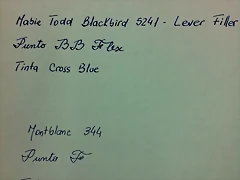 Mabie Todd Blackbird 5241 - Lever Filler
Punto BB Flex
Tinta Cross Blue
Montblanc 344
Punta F